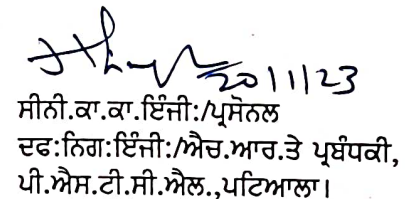 20/1/23
ਸੀਨੀ.ਕਾ.ਕਾ.ਇੰਜੀ:/ਪ੍ਰਸੋਨਲ
ਦਫ:ਨਿਗ:ਇੰਜੀ:/ਐਚ.ਆਰ.ਤੇ ਪ੍ਰਬੰਧਕੀ,
ਪੀ.ਐਸ.ਟੀ.ਸੀ.ਐਲ.,ਪਟਿਆਲਾ।